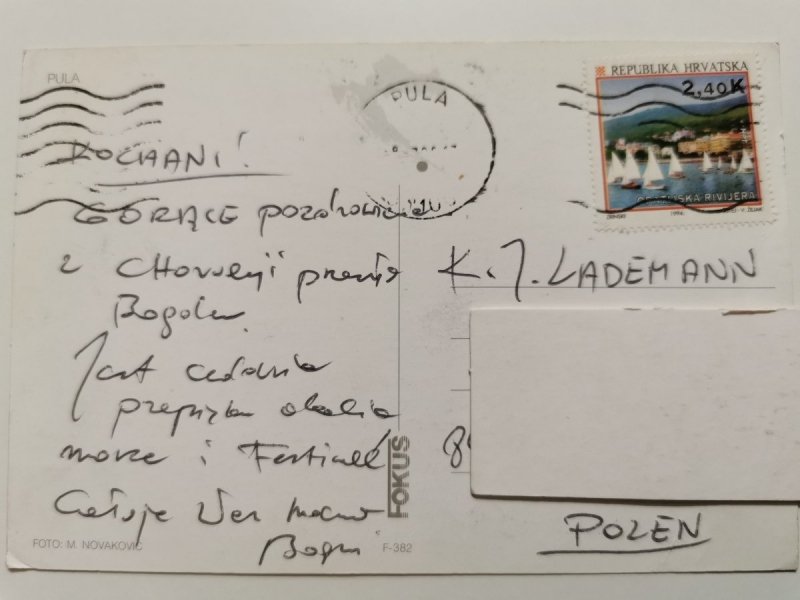 PULA
REPUBLIKA HRVATSKA
2,40K
OPATIJSKA RIVIJERA
ZRINSKI 1994.
PULA
KOCHANI!
GORĄCE pozdrowienia
z CHorwacji przesyła
Bogdan
Jest cudownie
przepiękna okolica
morze i Festiwal
Całuję Was mocno
K. J. LADEMANN
POLEN
FOKUS
FOTO: M. NOVAKOVIĆ
F-382